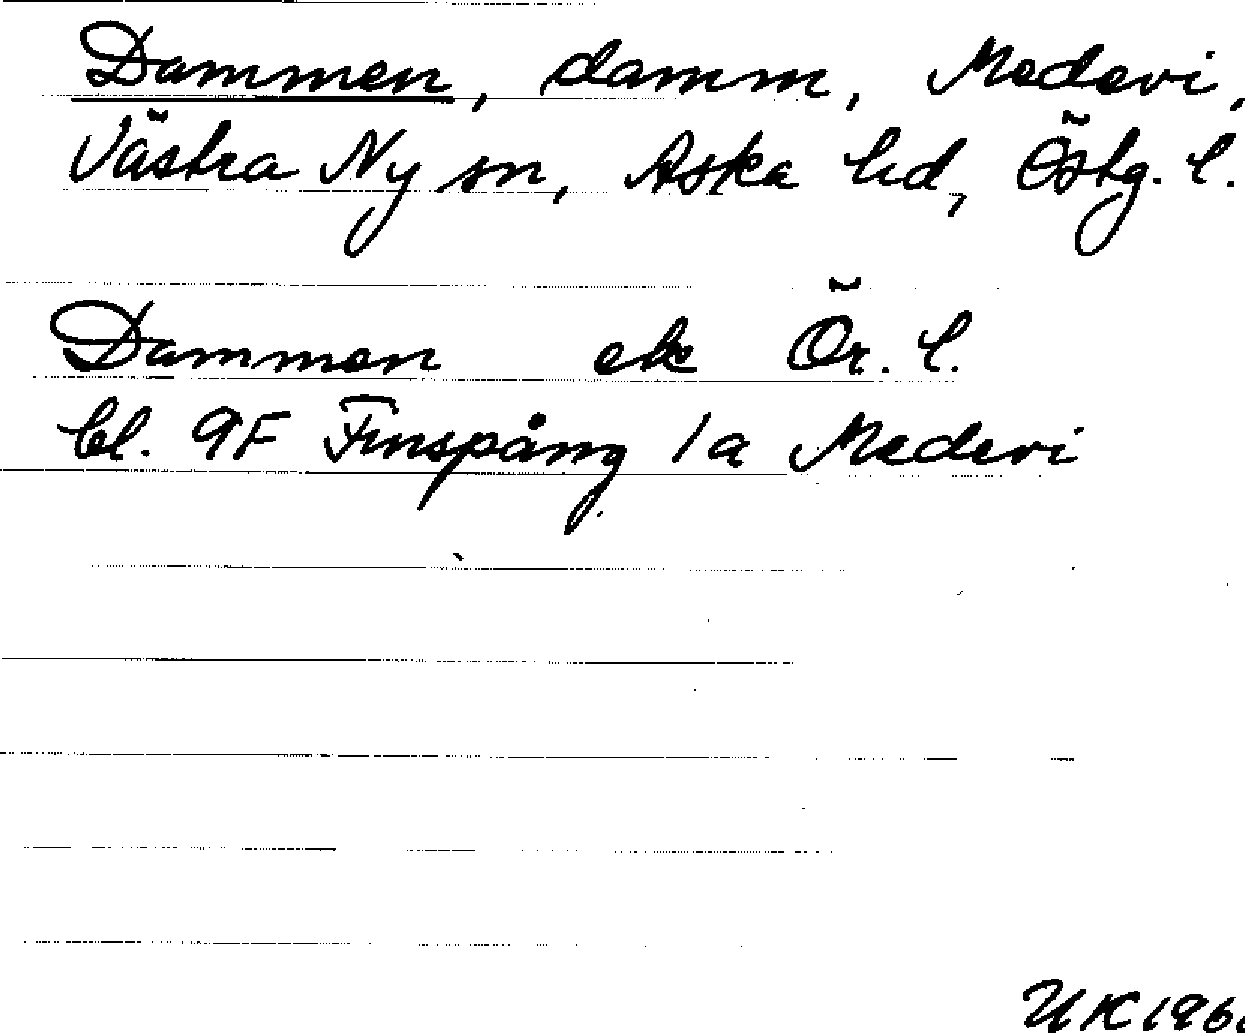 Dammen, damm, Medevi,
Västra Ny sn, Aska hd, Östg. l.
Dammen ek Ör. l.
bl. 9F Finspång 1a Medevi
UK 196